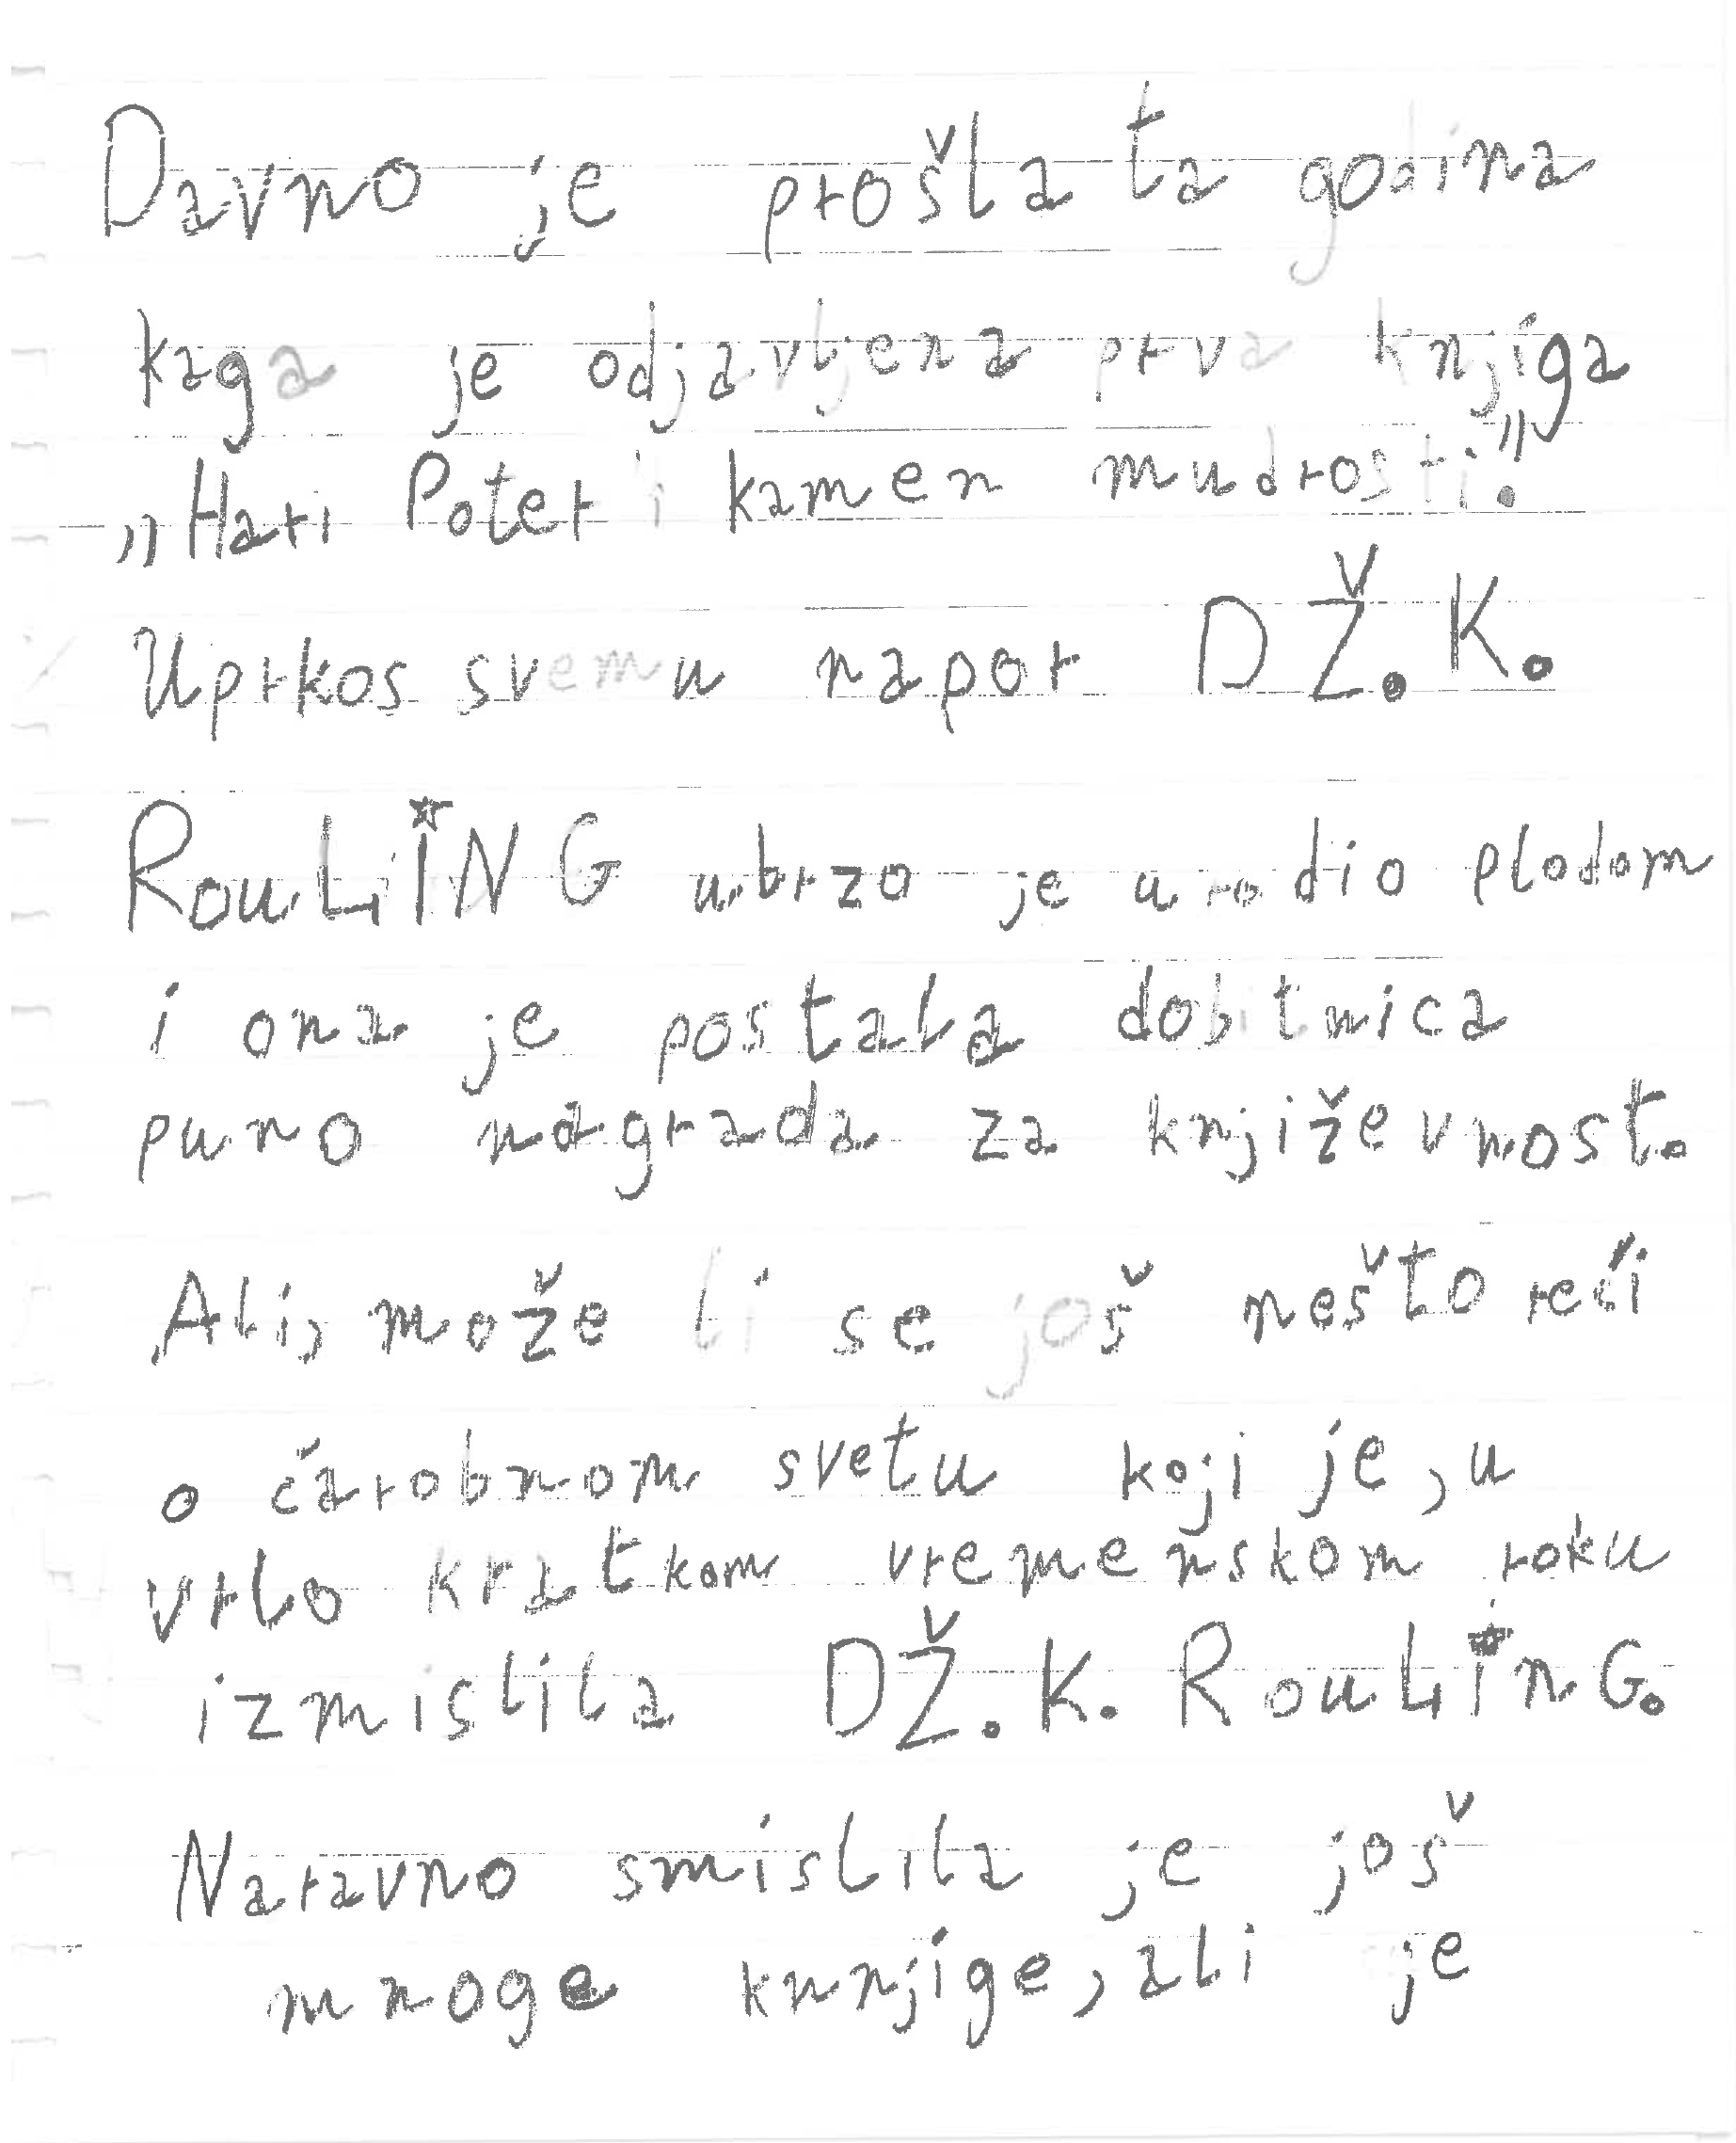 Davno je prošla ta godina
kaga je odjavljena prva knjiga
„Hari Poter i kamen mudrosti."
Uprkos svemu napor DŽ.K.
RouLiNG ubrzo je urodio plodom
i ona je postala dobitnica
puno nagrada za književnost.
Ali, može li se još nešto reći
o čarobnom svetu koji je, u
vrlo kratkom vremenskom roku
izmislila DŽ.K. RouLinG.
Naravno smislila je još
mnoge knnjige, ali je